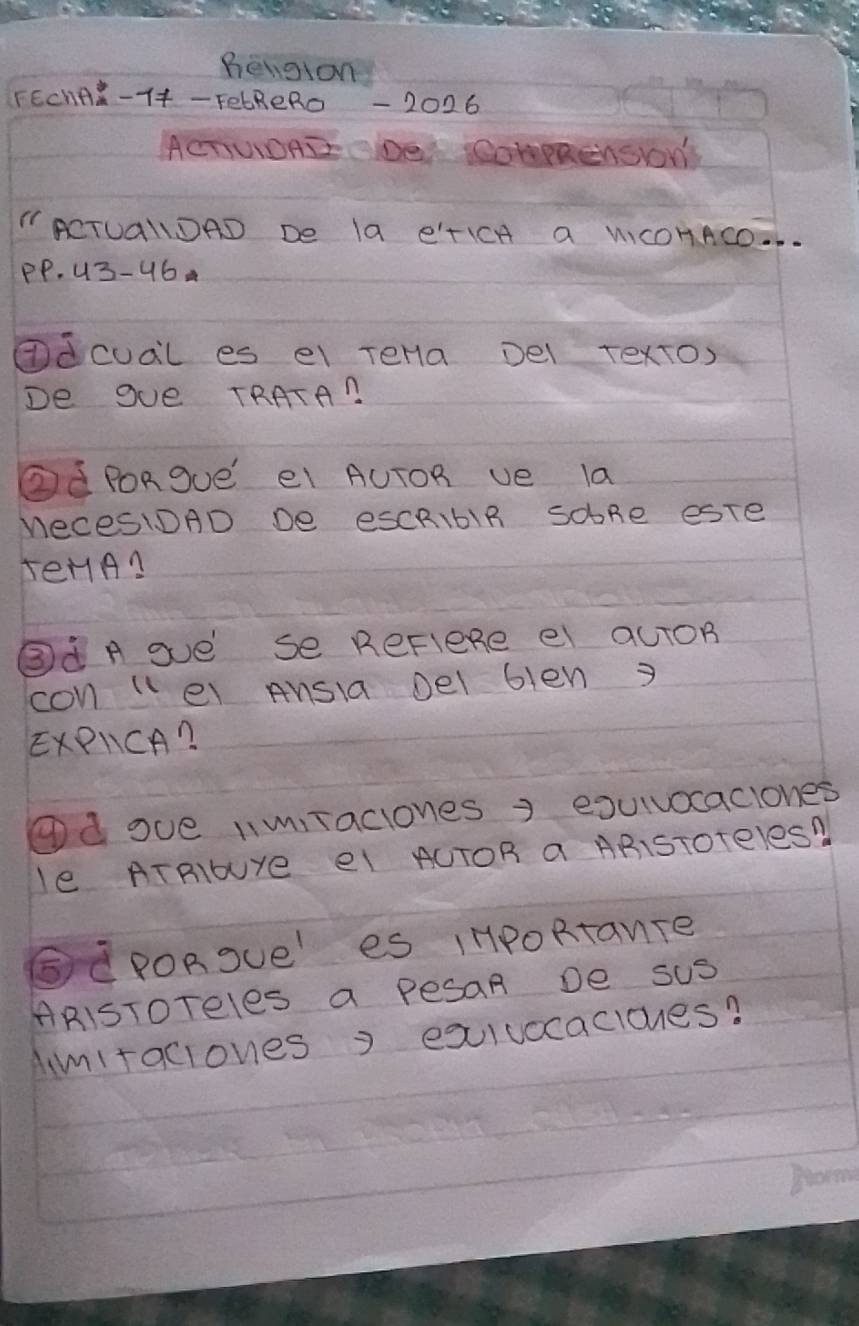 Religion
FEchA: -17 -FebReRo -2026
ACTIVIDAD De COMPRENSION
"ACTUAlIDAD De la e'TICA a NICOMACO...
PP. 43-46.
① ¿cuál es el TeMa Del TexTO,
De que TRATA?
② ¿PORqué el AUTOR ve la
necesIDAD De escRIbIR SObRe esTe
TeMA?
③ ¿A qué se ReFIeRe el auTOR
con "el Ansia Del bien y
EXPlICA?
④ ¿que limITaciones y equivocaciones
le ATRIbuye el AUTOR a ARISTOTeles?
⑤ ¿PORque' es IMPORTanTe
ARISTOTeles a PesaR De sus
limiTaciones y equivocaciones?
Norma